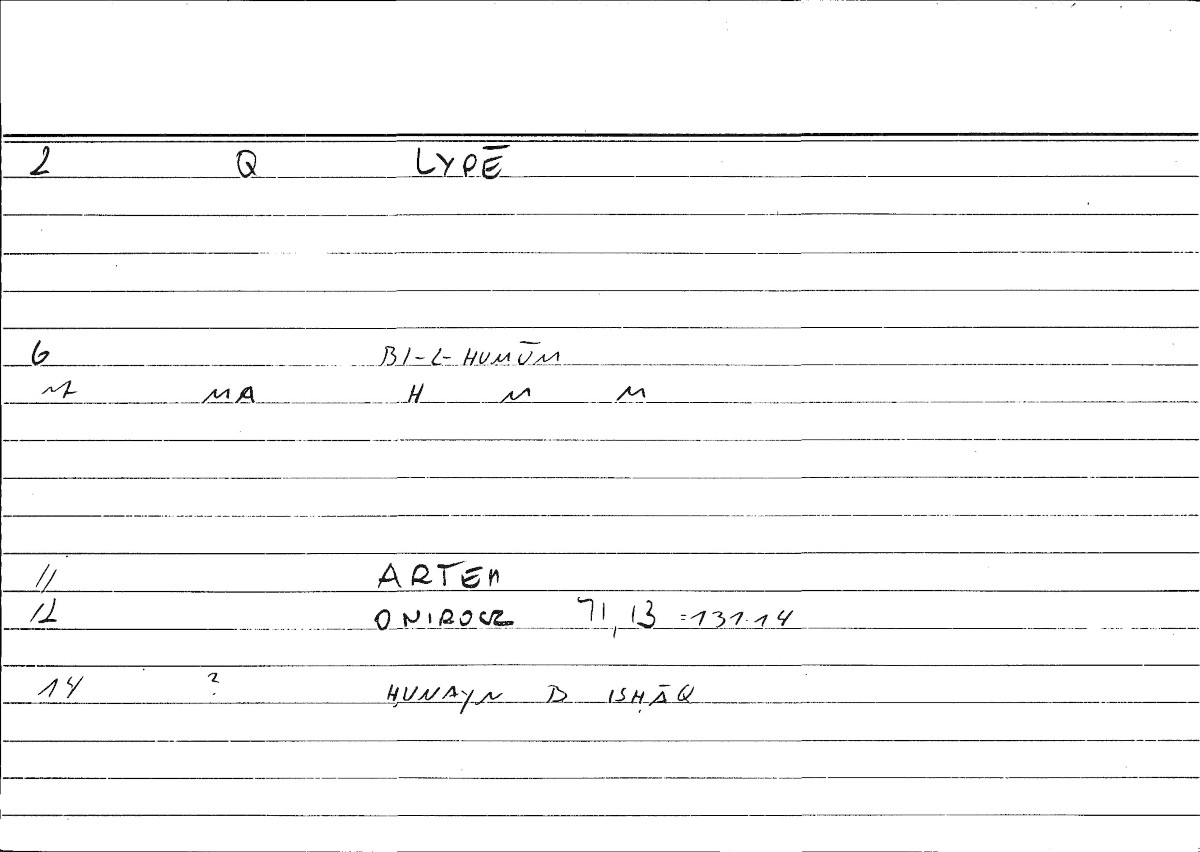 2 Q LYPĒ
6 BI-L-HUMŪM
MA H M M
11 ARTEM
12 ONIROCR 71,13 =131.14
14 ? ḤUNAYN B ISḤĀQ